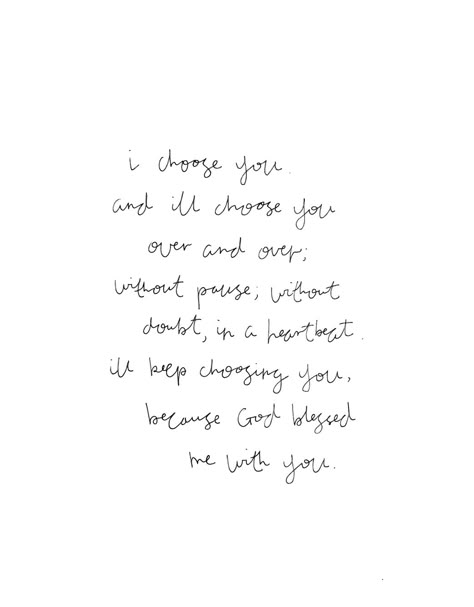 i choose you.
and ill choose you
over and over;
without pause; without
doubt, in a heartbeat.
ill keep choosing you,
because God blessed
me with you.